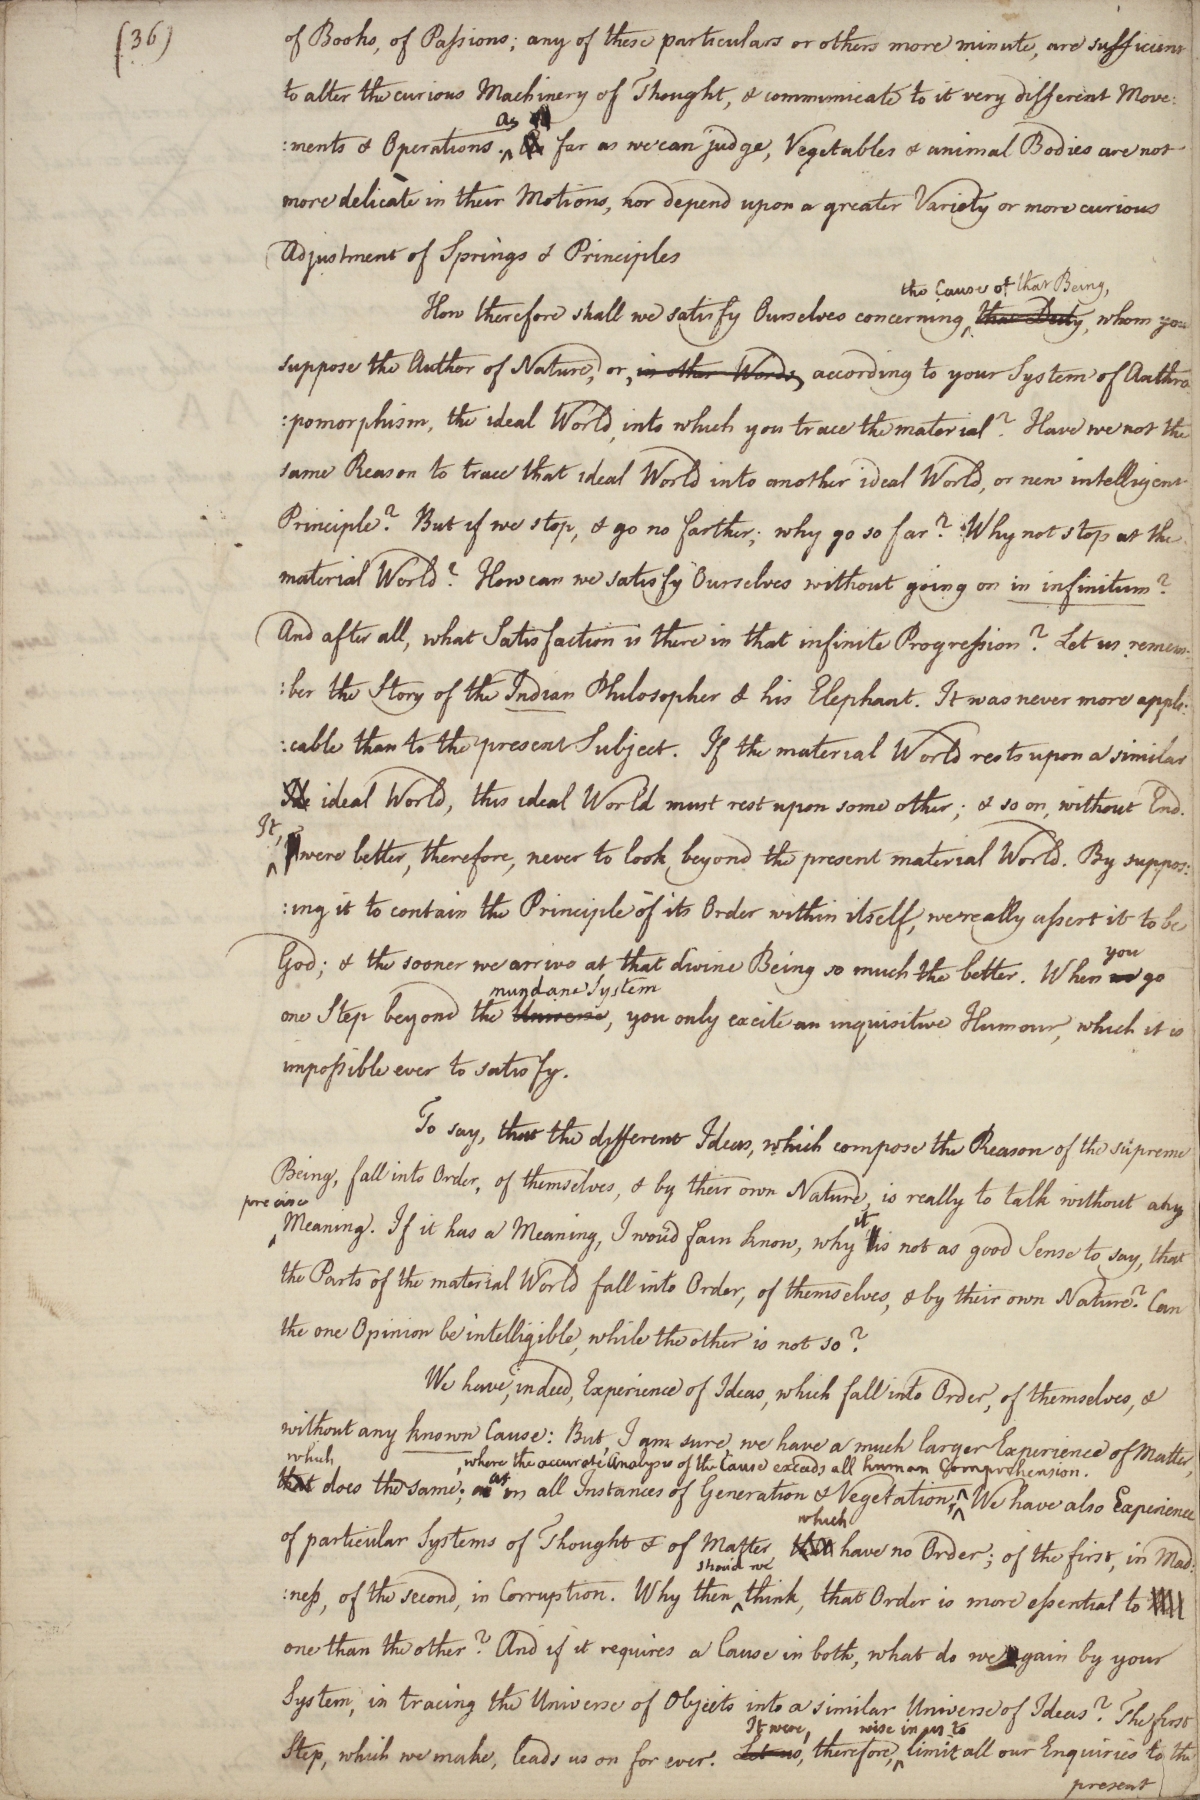 (36)
of Books, of Passions; any of these particulars or others more minute, are sufficient
to alter the curious Machinery of Thought, & communicate to it very different Move:
as
:ments & Operations. far as we can judge, Vegetables & animal Bodies are not
more delicate in their Motions, nor depend upon a greater Variety or more curious
Adjustment of Springs & Principles
the Cause of that Being,
How therefore shall we satisfy Ourselves concerning that Deity, whom you
suppose the Author of Nature, or, in other Words, according to your System of Anthro
:pomorphism, the ideal World, into which you trace the material? Have we not the
same Reason to trace that ideal World into another ideal World, or new intelligent
Principle? But if we stop, & go no farther; why go so far? Why not stop at the
material World? How can we satisfy Ourselves without going on in infinitum?
And after all, what Satisfaction is there in that infinite Progression? Let us remem:
:ber the Story of the Indian Philosopher & his Elephant. It was never more appli:
:cable than to the present Subject. If the material World rests upon a similar
ideal World, this ideal World must rest upon some other; & so on, without End.
It,
were better, therefore, never to look beyond the present material World. By suppos:
:ing it to contain the Principle of its Order within itself, we really assert it to be
God; & the sooner we arrive at that divine Being so much the better. When we go
you
mundane System
one Step beyond the Universe, you only excite an inquisitive Humour, which it is
impossible ever to satisfy.
To say, that the different Ideas, which compose the Reason of the supreme
Being, fall into Order, of themselves, & by their own Nature, is really to talk without any
precise
Meaning. If it has a Meaning, I wou'd fain know, why it is not as good Sense to say, that
the Parts of the material World fall into Order, of themselves, & by their own Nature? Can
the one Opinion be intelligible, while the other is not so?
We have, indeed, Experience of Ideas, which fall into Order, of themselves, &
without any known Cause: But, I am sure, we have a much larger Experience of Matter,
which
, where the accurate Analysis of the Cause exceeds all human Comprehension.
that does the same; as in all Instances of Generation & Vegetation; We have also Experience
which
of particular Systems of Thought & of Matter that have no Order; of the first, in Mad:
shou'd we
:ness, of the second, in Corruption. Why then think, that Order is more essential to
one than the other? And if it requires a Cause in both, what do we gain by your
System, in tracing the Universe of Objects into a similar Universe of Ideas? The first
It were, wise in us to
Step, which we make, leads us on for ever. Let us, therefore, limit all our Enquiries to the
present